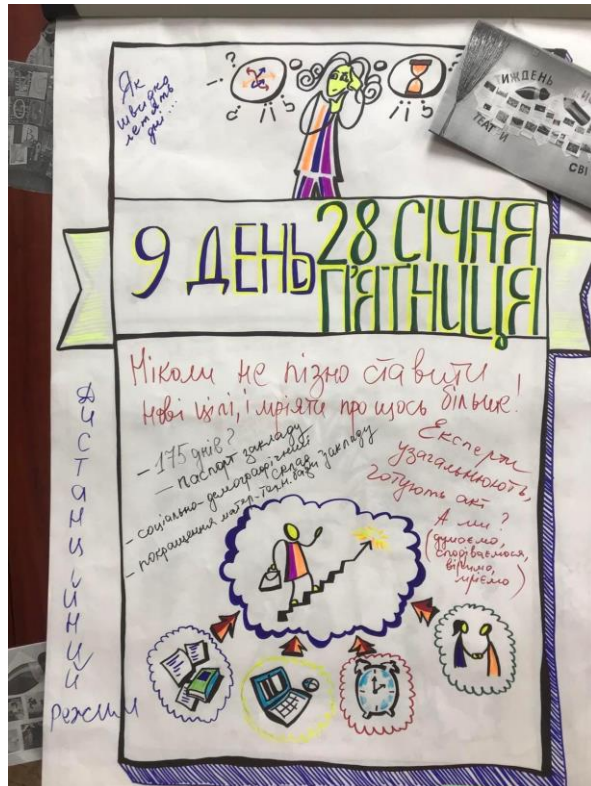 Як
швидко
летять
дні...
ТИЖДЕНЬ
ТЕАТ
СВІ
9 ДЕНЬ
28 СІЧНЯ
П'ЯТНИЦЯ
Ніколи не пізно ставити
нові цілі, і мріяти про щось більше!
- 175 днів?
- паспорт закладу
- соціально-демографічний
склад
- покращення матер.-техн. бази закладу
Експерти
узагальнюють,
готують акт
А ми?
(думаємо,
сподіваємося,
віримо,
мріємо)
ДИСТАНЦІЙНИЙ
режим